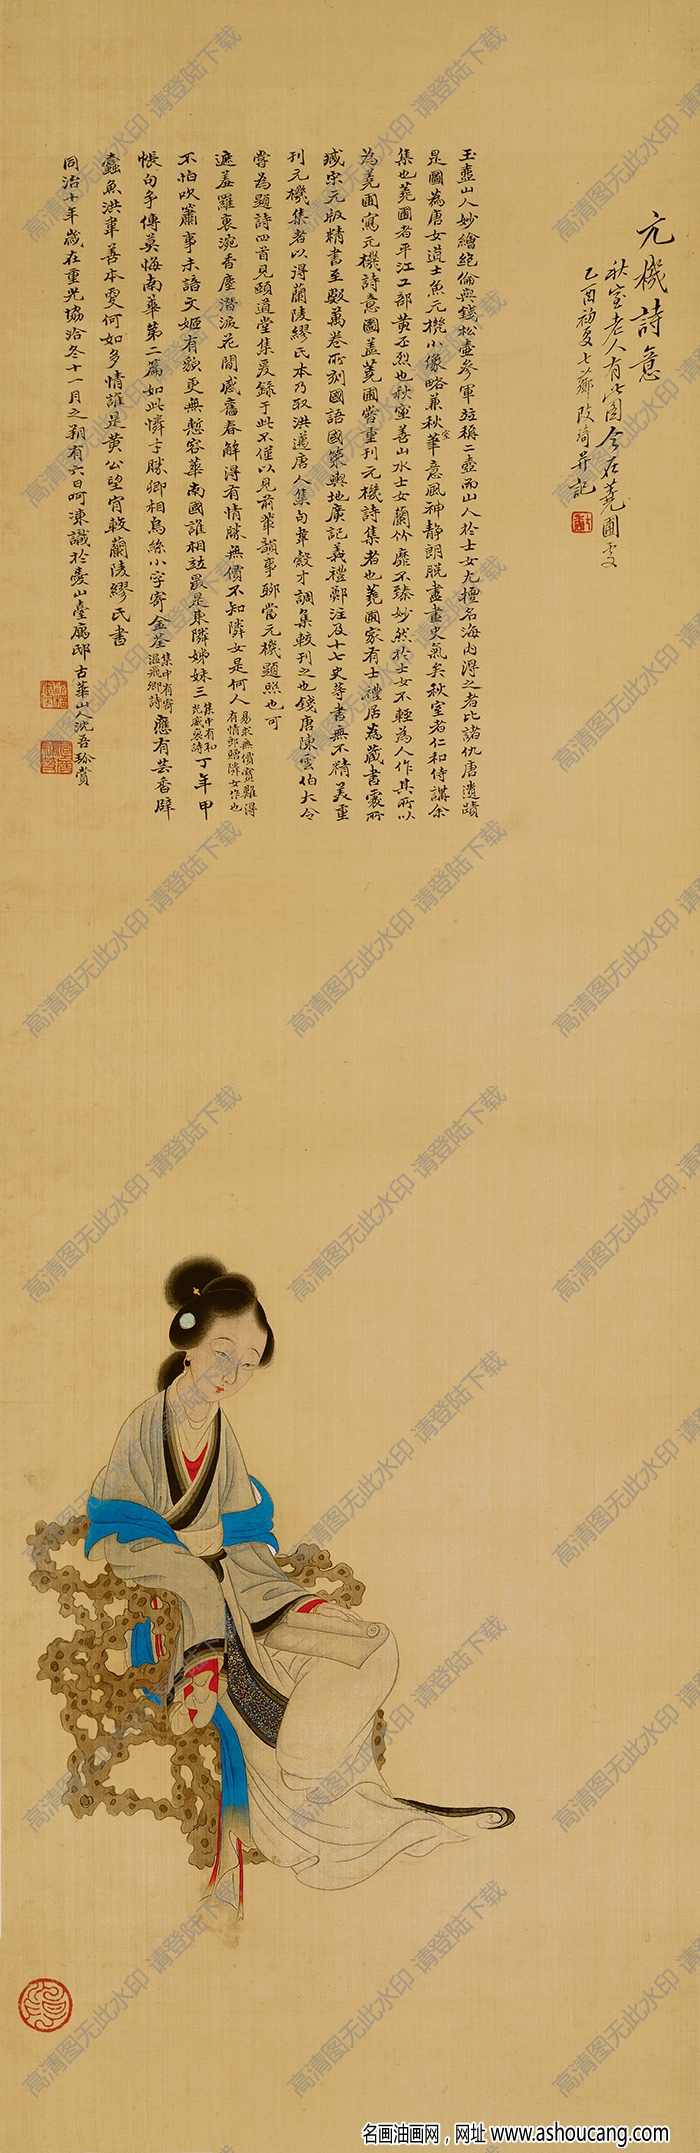 元機詩意
秋室老人有此圖今在蕘圃處
乙酉初夏七薌改琦并記
玉壺山人妙繪絕倫與錢松壺參軍並稱二壺而山人於士女尤擅名海内得之者比諸仇唐遺蹟
是圖為唐女道士魚元機小像略兼秋室筆意風神静朗脱盡畫史氣矣秋室者仁和侍講余
集也蕘圃者平江工部黄丕烈也秋室善山水士女蘭竹靡不臻妙然於士女不輕為人作其所以
為蕘圃寫元機詩意圖蓋蕘圃嘗重刊元機詩集者也蕘圃家有士禮居為藏書處所
臧宋元版精書至數萬卷所刻國語國策輿地廣記義禮鄭注及十七史等書無不精美重
刊元機集者以得蘭陵繆氏本乃取洪邁唐人集句韋縠才調集較刊之也錢唐陳雲伯大令
嘗為題詩四首見頤道堂集爰錄于此不僅以見前輩韻事聊當元機題照也可
遮羞羅褏涴香塵潛淚花間感舊春解得有情勝無價不知隣女是何人易求無價寳難得有情郎贈隣女作也
不怕吹簫事未諧文姬有貌更無愁容華南國誰相並最是東隣姊妹三集中有和光威裒詩丁年甲
帳句手傳莫悔南華第二篇如此憐才勝卿相烏絲小字寄金荃集中有寄温飛卿詩應有芸香辟
蠹魚洪韋善本更何如多情誰是黄公望宵較蘭陵繆氏書
同治十年歲在重光協洽冬十一月之朔有六日呵凍識於 山臺廨邸古華山人沈吾 賞
高清图无此水印 请登陆下载
名画油画网，网址 www.ashoucang.com